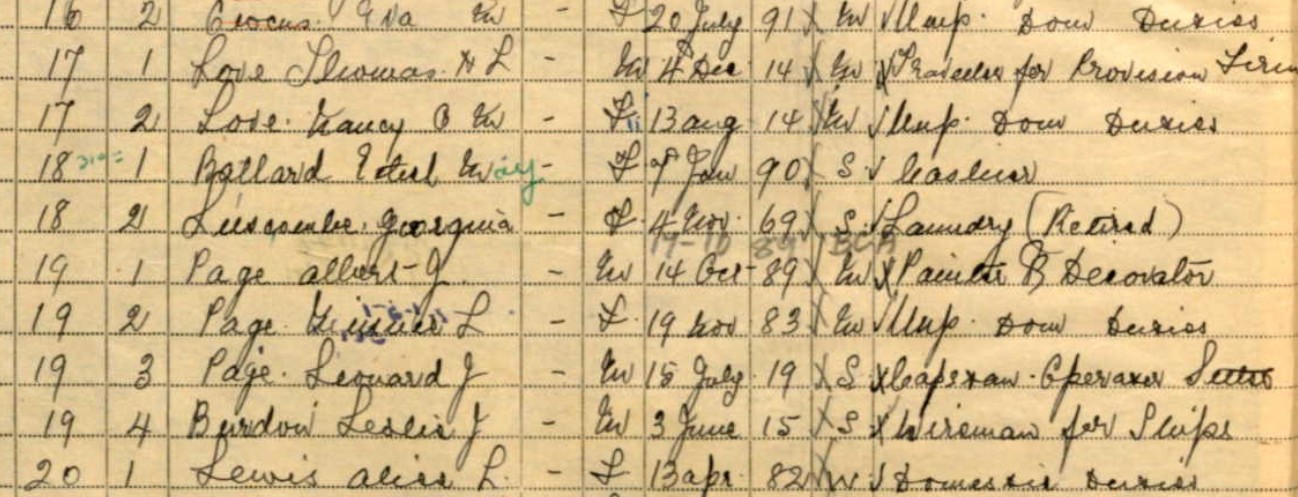 16 2 Crocus Eva M - F 20 July 91 M Unp. Dom Duties
17 1 Love Thomas H L - M 4 Dec 14 M Traveller for Provision Firm
17 2 Love Nancy O M - F 13 Aug 14 M Unp. Dom Duties
18 1 Ballard Ethel May - F 9 Jan 90 S Cashier
18 2 Luscombe Georgina - F 4 Nov. 69 S Laundry (Retired)
19-10 89 BCA
19 1 Page Albert J. - M 14 Oct 89 M Painter & Decorator
19 2 Page L - F 19 Nov 83 M Unp. Dom Duties
19 3 Page Leonard J - M 15 July 19 S Capstan Operator
19 4 Burdon Leslie J - M 3 June 15 S Wireman for Ships
20 1 Lewis Alice L. - F 13 Apr 82 W Domestic Duties